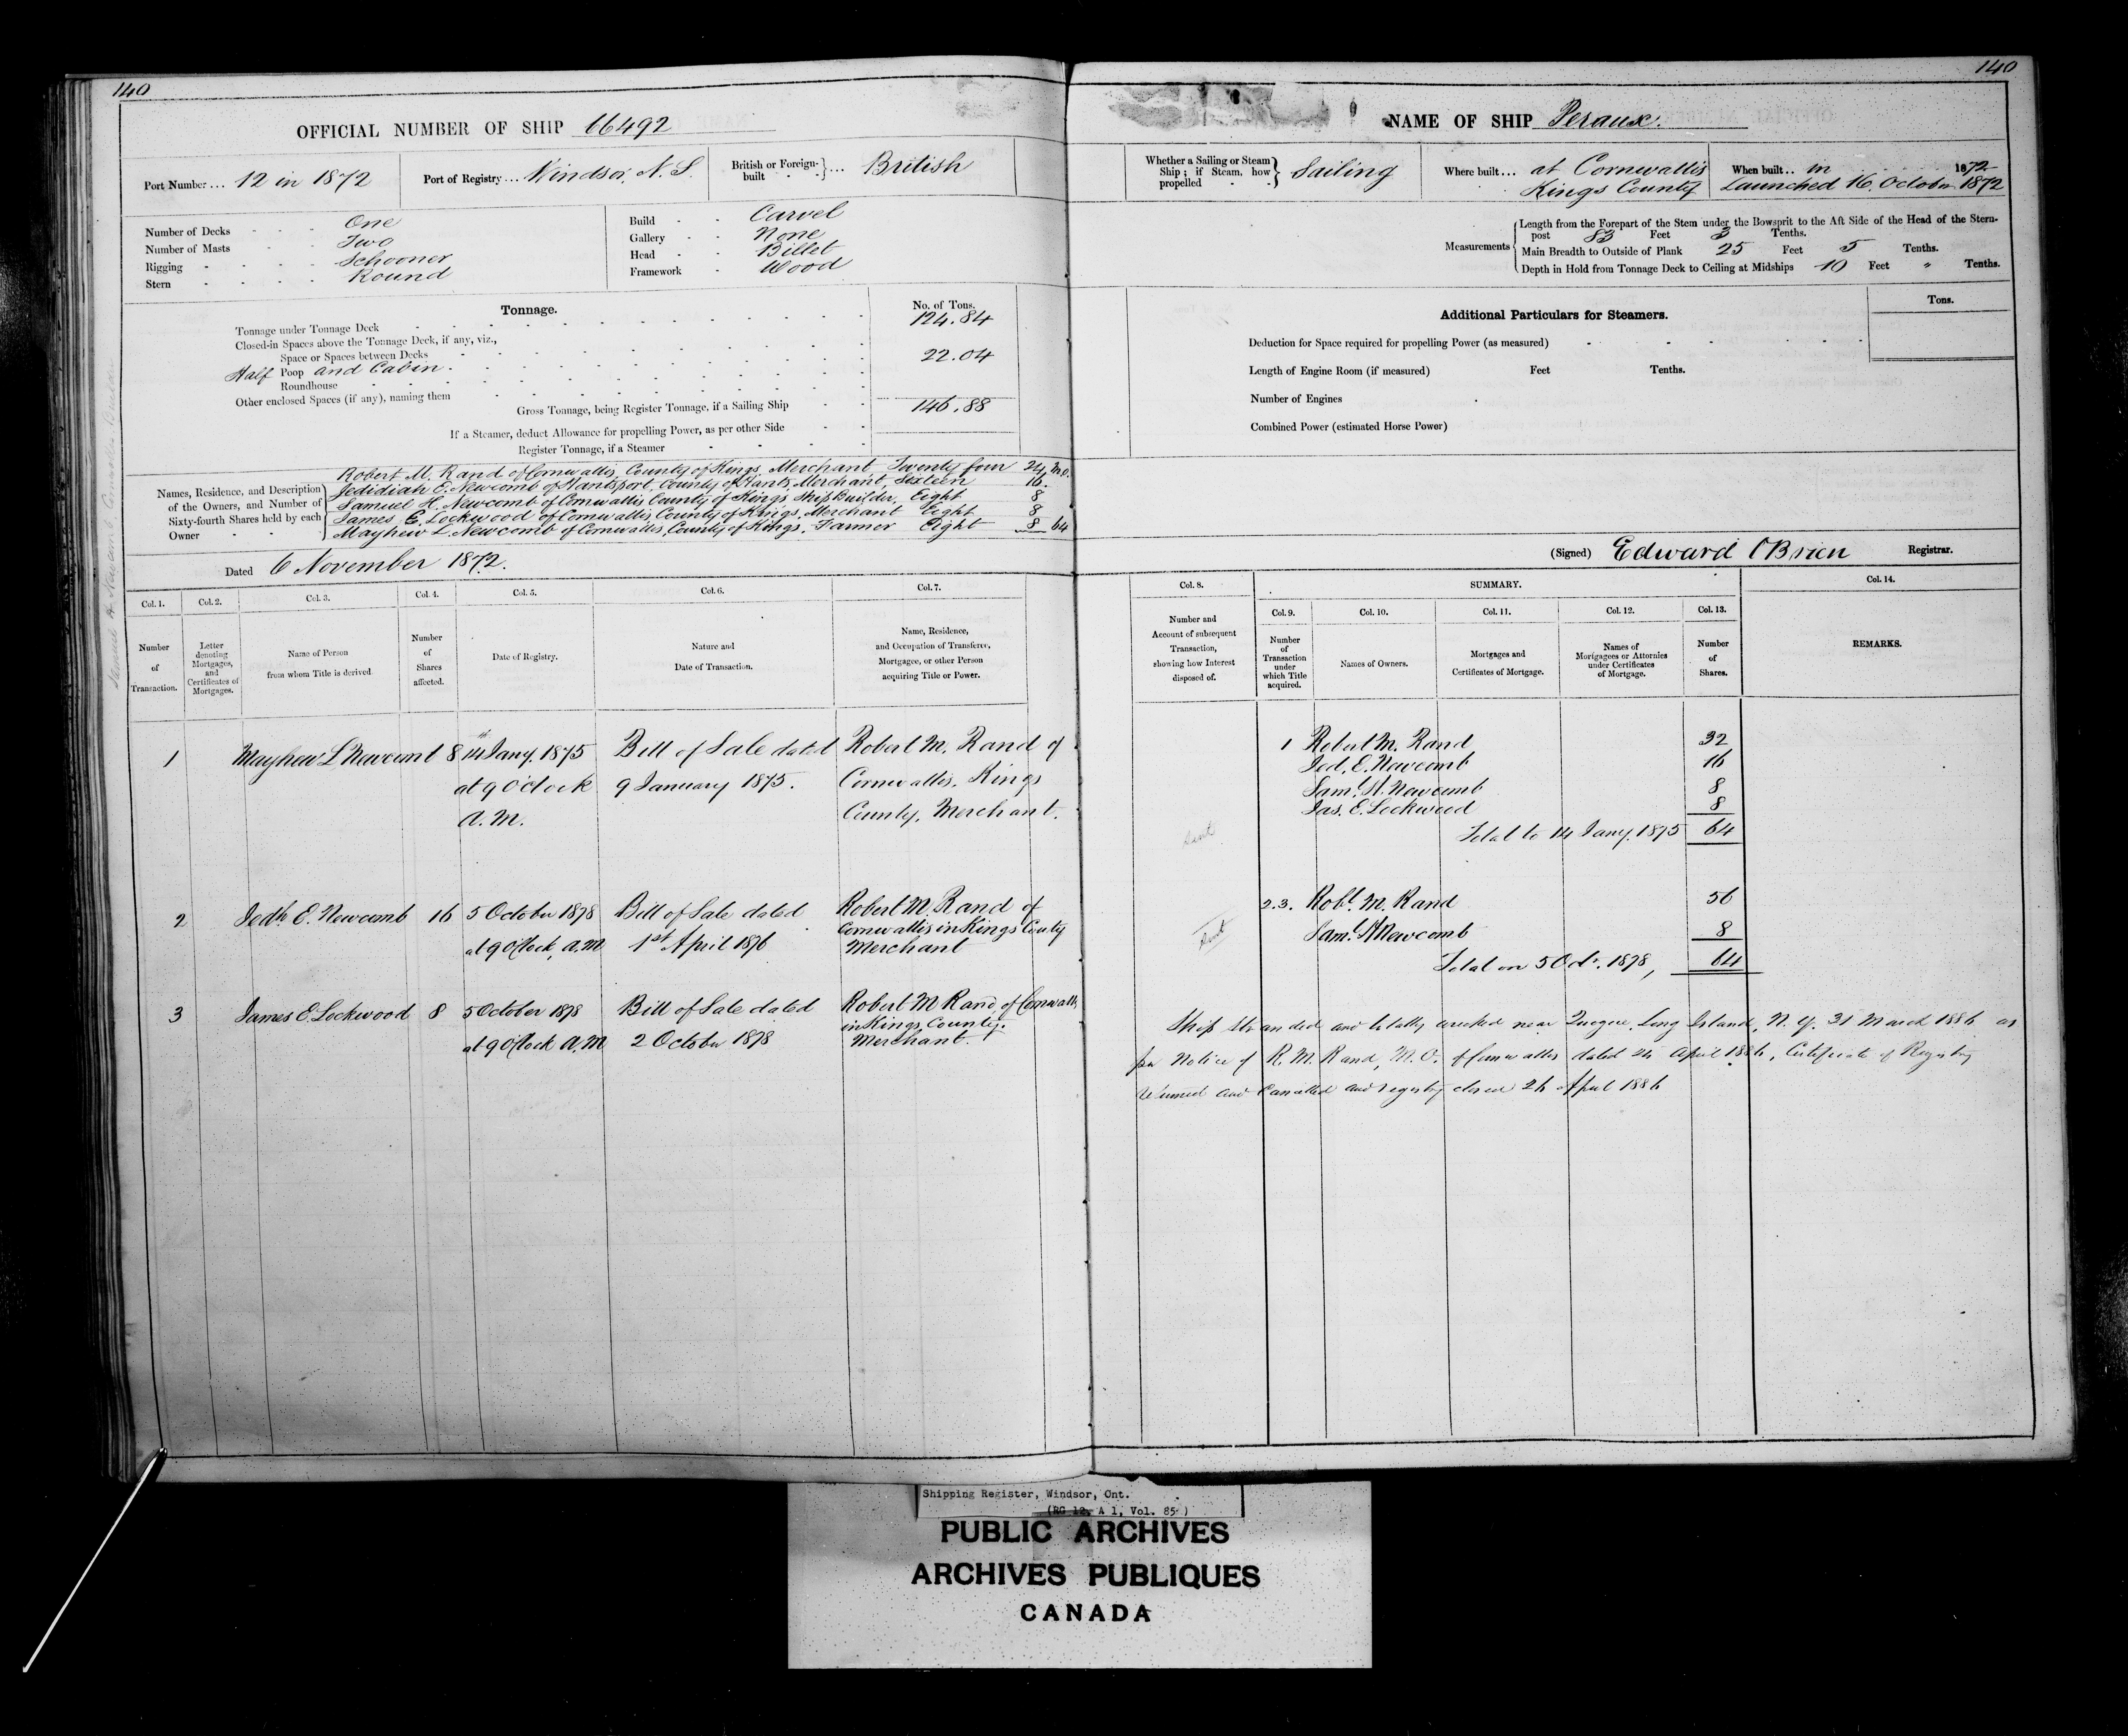 140
OFFICIAL NUMBER OF SHIP 66492
Port Number... 12 in 1872
Port of Registry... Windsor, N. S.
British or Foreign-built ... British
Number of Decks One
Number of Masts Two
Rigging Schooner
Stern Round
Build Carvel
Gallery None
Head Billet
Framework Wood
Tonnage.
No. of Tons.
Tonnage under Tonnage Deck 124.84
Closed-in Spaces above the Tonnage Deck, if any, viz.,
Space or Spaces between Decks
Half Poop and Cabin. 22.04
Roundhouse
Other enclosed Spaces (if any), naming them
Gross Tonnage, being Register Tonnage, if a Sailing Ship 146.88
If a Steamer, deduct Allowance for propelling Power, as per other Side
Register Tonnage, if a Steamer
Names, Residence, and Description of the Owners, and Number of Sixty-fourth Shares held by each Owner
Robert M. Rand of Cornwallis, County of Kings, Merchant, Twenty four 24, M.O.
Jedidiah E. Newcomb of Hantsport, County of Hants, Merchant, Sixteen 16.
Samuel H. Newcomb of Cornwallis County of Kings Ship Builder, Eight 8
James E. Lockwood of Cornwallis County of Kings, Merchant Eight 8
Mayhew L. Newcomb of Cornwallis, County of Kings, Farmer Eight 8 64
Dated 6 November 1872.
Col. 1. Col. 2. Col. 3. Col. 4. Col. 5. Col. 6. Col. 7.
Number of Transaction.
Letter denoting Mortgages, and Certificates of Mortgages.
Name of Person from whom Title is derived
Number of Shares affected.
Date of Registry.
Nature and Date of Transaction.
Name, Residence, and Occupation of Transferee, Mortgagee, or other Person acquiring Title or Power.
1 Mayhew L Newcomb 8 14th Jany. 1875 Bill of Sale dated Robert M. Rand of
at 9 O'clock 9 January 1875. Cornwallis, Kings
A. M. County, Merchant.
2 Jedh. E. Newcomb 16 5 October 1878 Bill of Sale dated Robert M. Rand of
at 9 O'Clock, A.M. 1st April 1876 Cornwallis in Kings County
Merchant
3 James E. Lockwood 8 5 October 1878 Bill of Sale dated Robert M Rand, of Cornwallis
at 9 O'Clock A.M. 2 October 1878 in Kings County.
Merchant.
140
NAME OF SHIP Peraux.
Whether a Sailing or Steam Ship; if Steam, how propelled Sailing
Where built... at Cornwallis
Kings County
When built.. in 1872
Launched 16 October 1872
Measurements
Length from the Forepart of the Stem under the Bowsprit to the Aft Side of the Head of the Stern-
post 83 Feet 3 Tenths.
Main Breadth to Outside of Plank 25 Feet 5 Tenths.
Depth in Hold from Tonnage Deck to Ceiling at Midships 10 Feet " Tenths.
Additional Particulars for Steamers.
Tons.
Deduction for Space required for propelling Power (as measured)
Length of Engine Room (if measured) Feet Tenths.
Number of Engines
Combined Power (estimated Horse Power)
(Signed) Edward O'Brien Registrar.
Col. 8. SUMMARY. Col. 14.
Col. 9. Col. 10. Col. 11. Col. 12. Col. 13.
Number and Account of subsequent Transaction, showing how Interest disposed of.
Number of Transaction under which Title acquired.
Names of Owners.
Mortgages and Certificates of Mortgage.
Names of Mortgagees or Attornies under Certificates of Mortgage.
Number of Shares.
REMARKS.
1 Robert M. Rand 32
Jed. E. Newcomb 16
Saml. H. Newcomb 8
Jas. E. Lockwood 8
Sent Total to 14 Jany. 1875 64
2.3. Robt. M. Rand 56
Sent Saml. H Newcomb 8
Total on 5 Octr. 1878, 64
Ship Stranded and totally wrecked near Quogue, Long Island, N. Y. 31 March 1886 as
per Notice of R. M. Rand, M.O. of Cornwallis dated 24 April 1886, Certificate of Registry
returned and Cancelled and registry closed 26 April 1886
Shipping Register, Windsor, Ont.
(RG 12, A 1, Vol. 85 )
PUBLIC ARCHIVES
ARCHIVES PUBLIQUES
CANADA